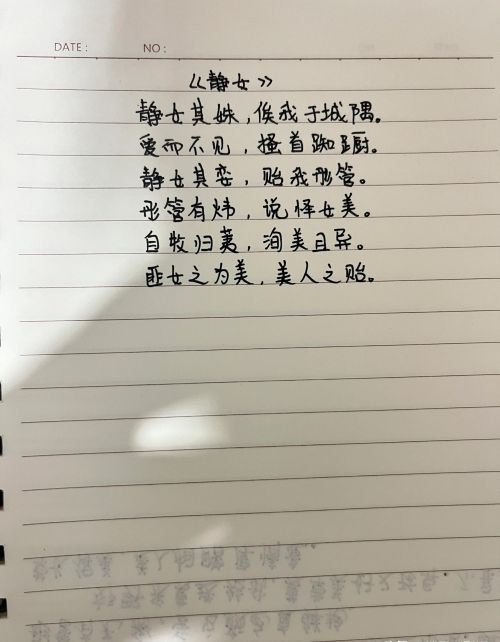 DATE: NO:
《静女》
静女其姝,俟我于城隅。
爱而不见,搔首踟蹰。
静女其娈,贻我彤管。
彤管有炜,说怿女美。
自牧归荑,洵美且异。
匪女之为美,美人之贻。